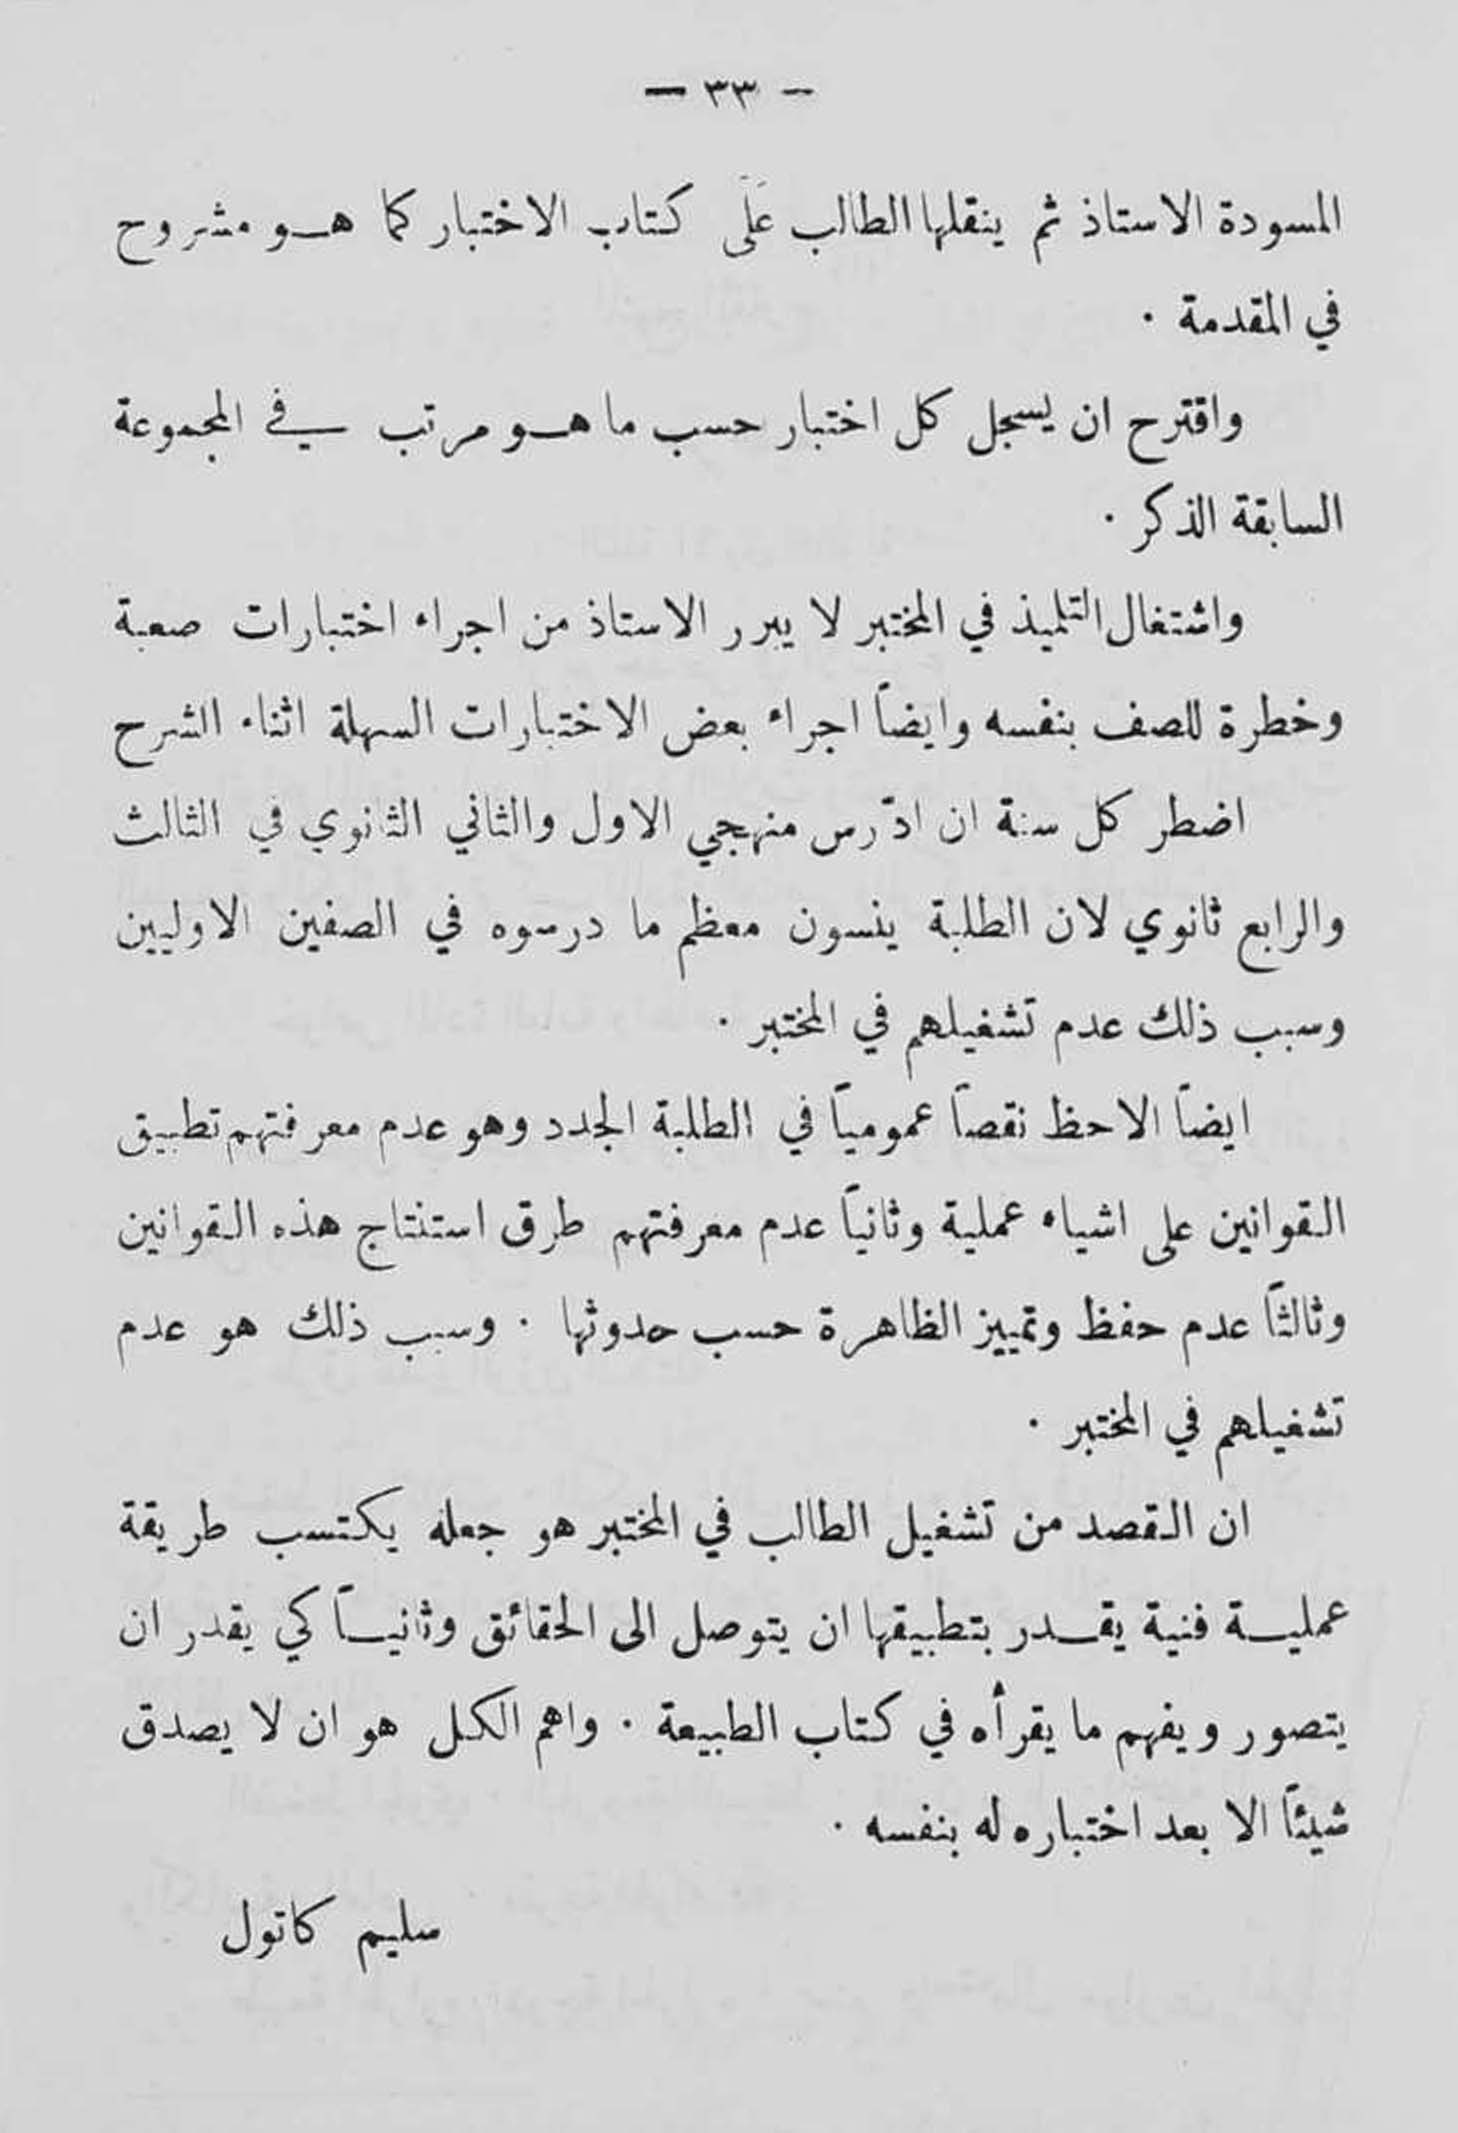 - ٣٣ -
المسودة الاستاذ ثم ينقلها الطالب عَلَى كتاب الاختبار كما هو مشروح
في المقدمة ·
واقترح ان يسجل كل اختبار حسب ما هو مرتب في المجموعة
السابقة الذكر ·
واشتغال التلميذ في المختبر لا يبرر الاستاذ من اجراء اختبارات صعبة
وخطرة للصف بنفسه وايضاً اجراء بعض الاختبارات السهلة اثناء الشرح
اضطر كل سنة ان ادّرس منهجي الاول والثاني الثانوي في الثالث
والرابع ثانوي لان الطلبة ينسون معظم ما درسوه في الصفين الاوليين
وسبب ذلك عدم تشغيلهم في المختبر ·
ايضاً الاحظ نقصاً عمومياً في الطلبة الجدد وهو عدم معرفتهم تطبيق
القوانين على اشياء عملية وثانياً عدم معرفتهم طرق استنتاج هذه القوانين
وثالثاً عدم حفظ وتمييز الظاهرة حسب حدوثها · وسبب ذلك هو عدم
تشغيلهم في المختبر ·
ان القصد من تشغيل الطالب في المختبر هو جعله يكتسب طريقة
عملية فنية يقدر بتطبيقها ان يتوصل الى الحقائق وثانياً كي يقدر ان
يتصور ويفهم ما يقرأه في كتاب الطبيعة · واهم الكل هو ان لا يصدق
شيئاً الا بعد اختباره له بنفسه ·
سليم كاتول